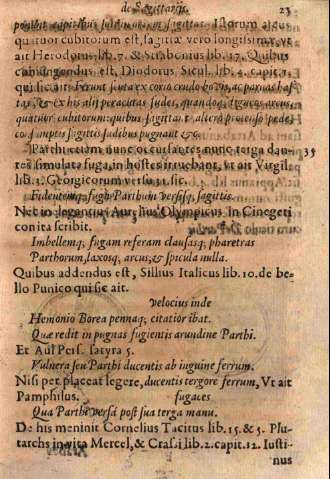 de Sagittariis. 23
quatuor cubitorum est, sagittæ vero longissimæ, vt
ait Herodotus lib. 7. & Strabonius lib. 17. Quibus
coniungendus est, Diodorus Sicul. lib. 4. capit. 3.
qui sic ait. Ferunt scuta ex corio crudo bovis, ac parvas has
tas, & ex his alij peracutas sudes, quandoq; ligneos arcus,
quatuor cubitorum: quibus sagittas & altero protenso pede,
sagittis sudibus pugnant &c.
Parthi etiam nunc occursantes nunc terga dan- 35
tes simulata fuga, in hostes irruebant, vt ait Virgil.
lib. 3. Georgicorum versu 31. sic.
Fidentemq; fugâ Parthum versisq; sagittis.
Nec inelegantius Aurelius Olympicus In Cinegeti
con ita scribit.
Imbellemq; fugam referam clausasq; pharetras
Parthorum, laxosq, arcus, & spicula nulla.
Quibus addendus est, Sillius Italicus lib. 10. de be
llo Punico qui sic ait.
Velocius inde
Hemonio Borea pennaq; citatior ibat.
Quæ redit in pugnas fugientis arundine Parthi.
Et Aul Pers. satyra 5.
Vulnera seu Parthi ducentis ab inguine ferrum.
Nisi pet placeat legere, ducentis tergore ferrum, Vt ait
Pamphilus. fugaces
Qua Parthi versâ post sua terga manu.
De his meninit Cornelius Tacitus lib. 15. & 5. Plu
tarchs in vita Mercel, & Cras. i lib. 2. capit. 12. Iusti-
nus